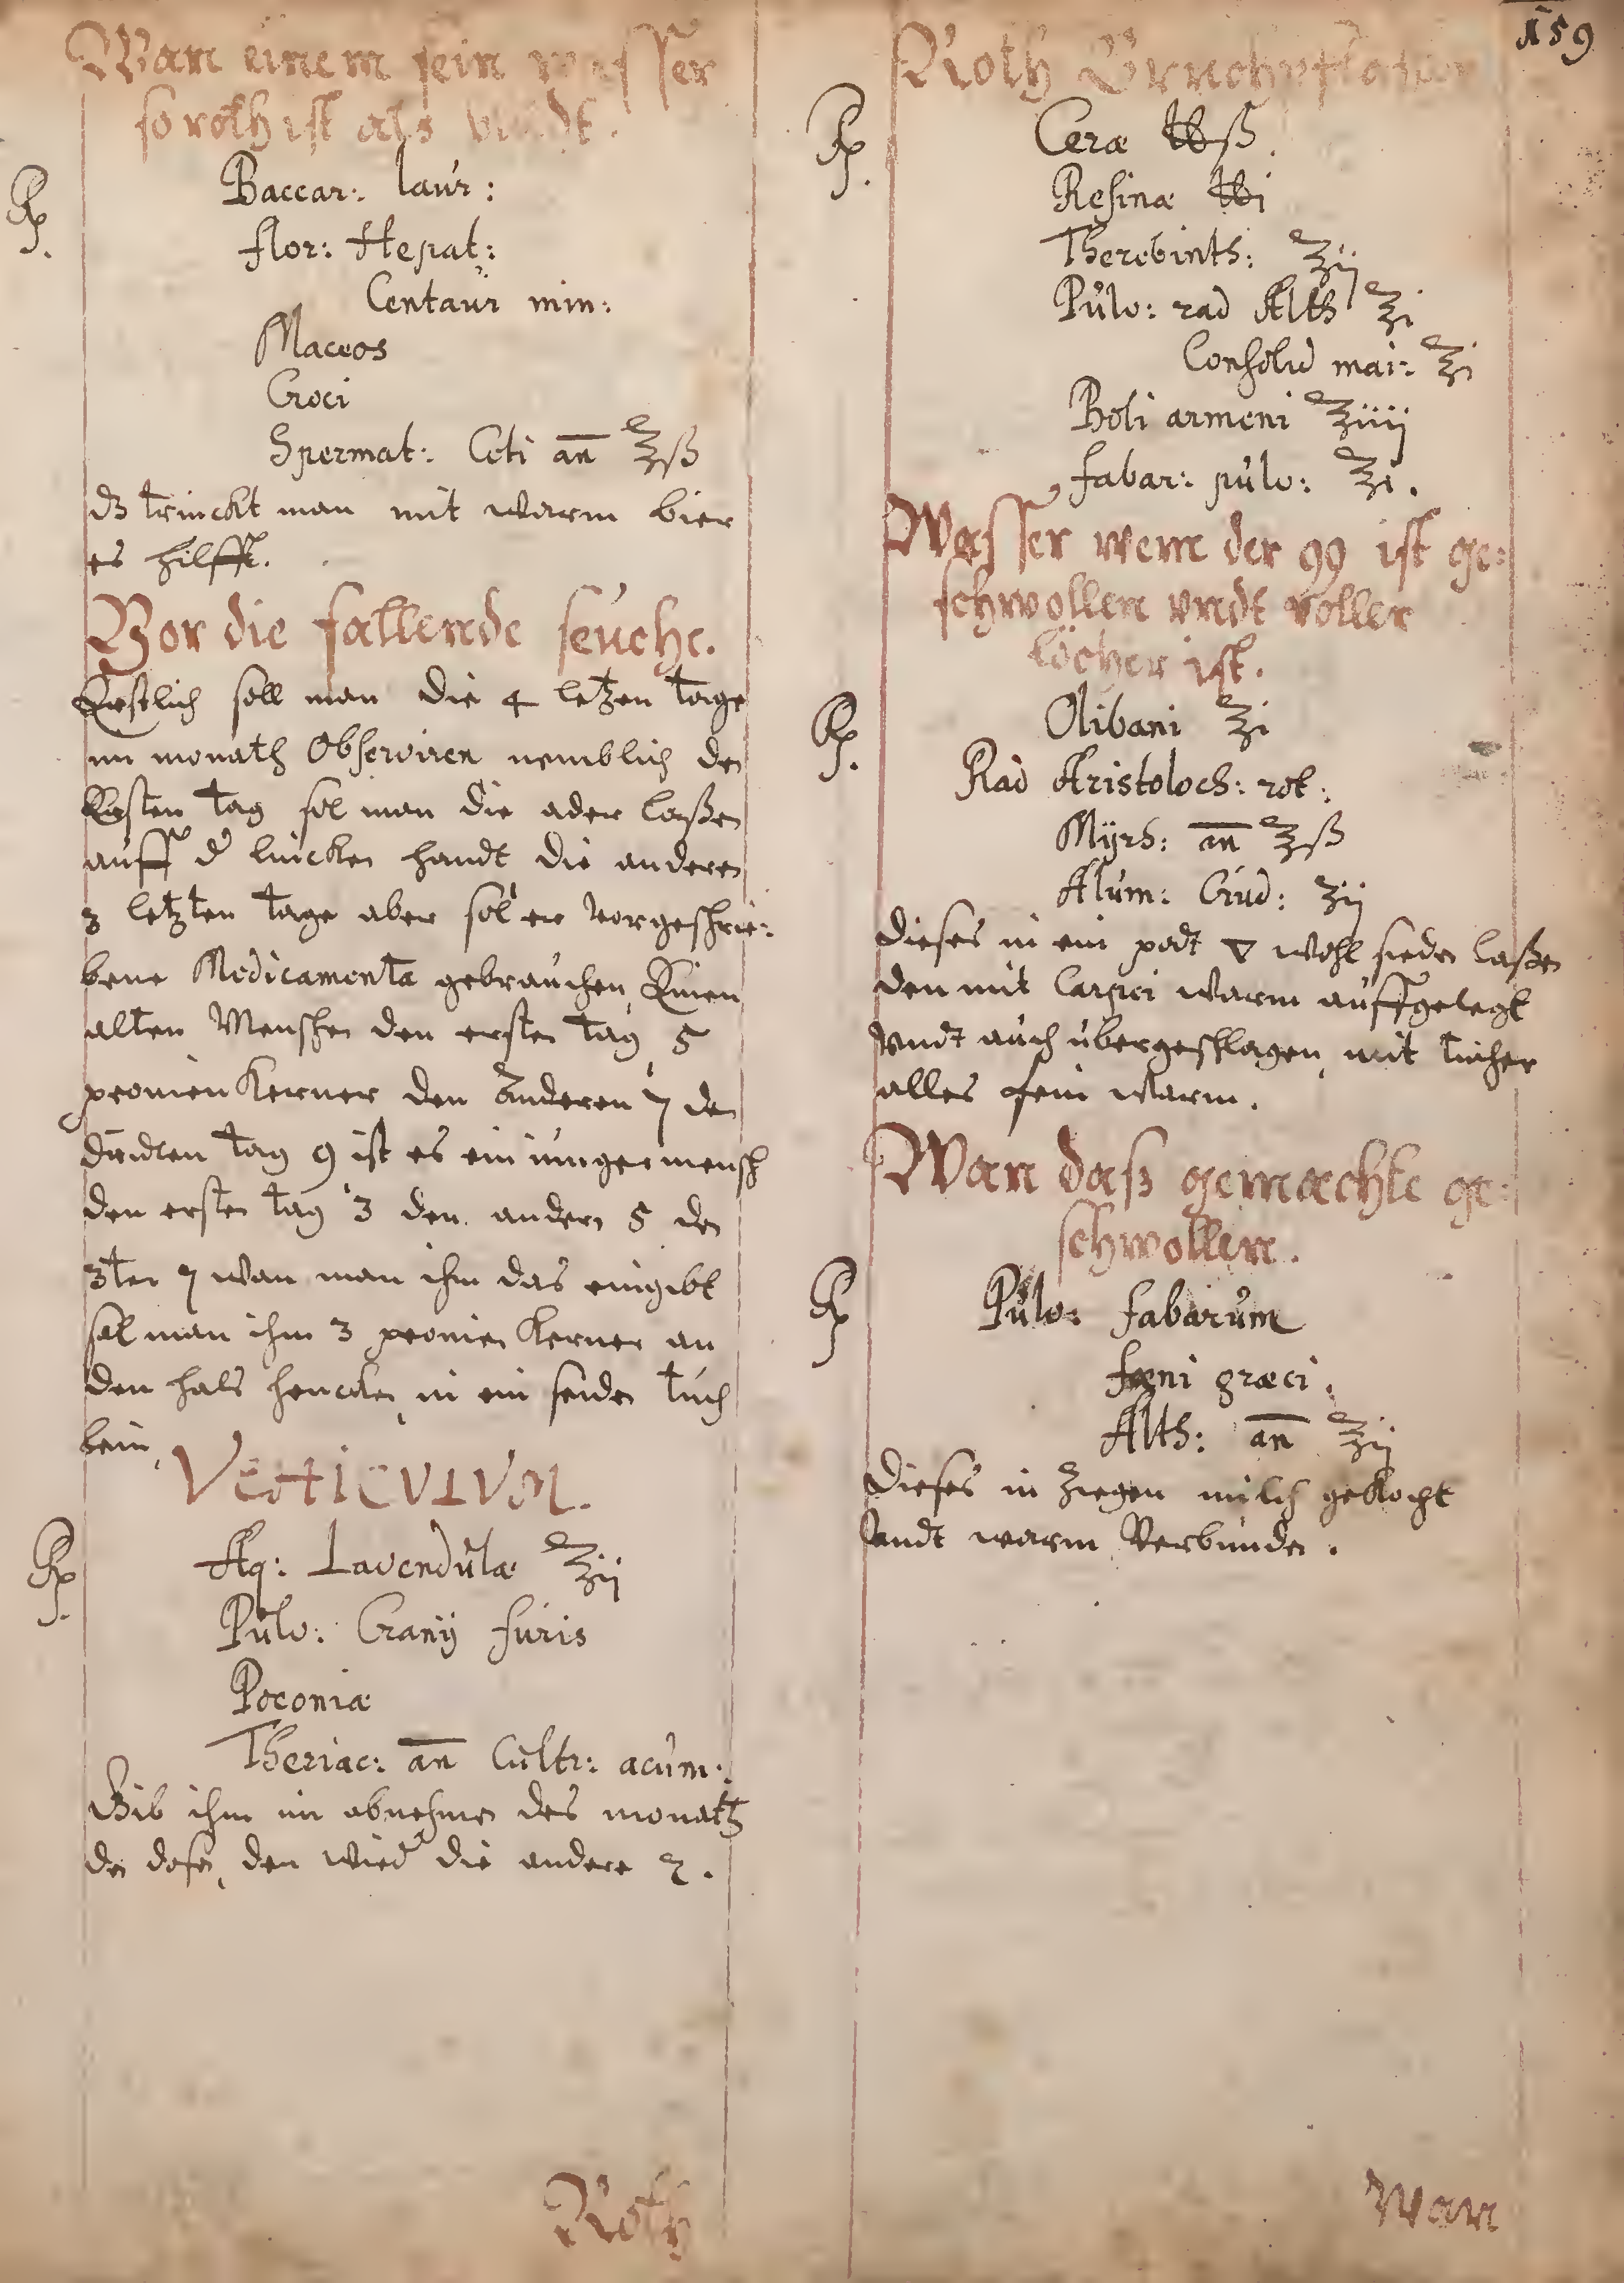 159
Wan einem sein wasser
so roth ist als
Rp.
Baccar: laur:
flor: Hepat:
Centaur min:
Maceos
Croci
Spermat: Ceti an ℥ß
dz trinckt man mit warm bier
es hilfft.
Vor die fallende seuche.
Erstlich soll man die 4 letzen tage
im monath Observiren nemblich den
Ersten tag sol man die ader laßen
auff d lincken handt die anderen
3 letzten tage aber sol er vorgeschrie:
bene Medicamenta gebrauchen, Einen
alten Menschen den ersten tag 5
peonien Kerner den anderen 7 den
dridten tag 9 ist es ein iunger mensch
den ersten tag 3 den andern 5 den
3ten 7 wan man ihm das eingibt
sal man ihm 3 peonien Kerner an
den hals hencken, in ein seiden tuch
lein,
Rp.
Aq: Lavendulæ ℥ij
Pulv: Cranij furis
Poeoniæ
Theriac: an Cultr: acum:
Gib ihm im abnehmen des monatz
den dosen, den wied die andere 2.
Roth
Roth
Rp.
Ceræ ℔ß.
Resinæ ℔i
Therebinth: ℥ij
Pulv: rad Alth ℥i
Consolid mai: ℥i
Boli armeni ℥iiij
fabar: pulv: ℥i.
Wasser wem der 99 ist ge:
schwollen vndt voller
löcher ist.
Rp.
Olibani ℥i
Rad Aristoloch: rot:
Myrh: an ℥ß
Alum: Crud: ʒij
Dieses in ein podt ▽ wohl sieden laßen
den mit Carpei warm auffgelegt
vndt auch übergeschlagen, mit tücher
alles fein warm.
Wan daß gemächte ge:
schwollen.
Rp
Pulv: fabarum
fæni græci.
Alth: an ℥ij
Dieses in Ziegen milch gekocht
vndt warm Verbunden.
Wan